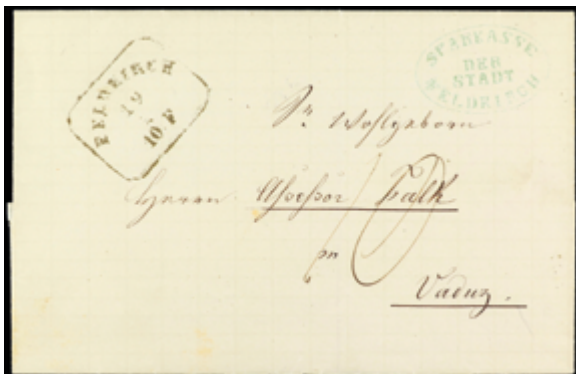 FELDKIRCH
19
10·F
SPARKASSE
DER
STADT
FELDKIRCH
Sr. Wohlgeborn
Herrn Assessor Falk
10
in
Vaduz.